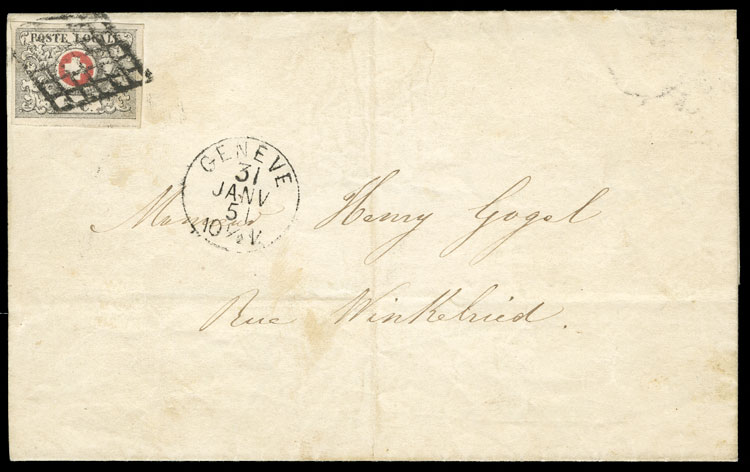 POSTE LOCALE
GENEVE
31
JANV
51
10½V
Monsieur Henry Gogel
Rue Winkelried.